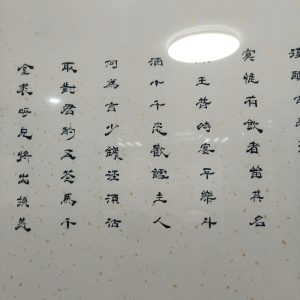 寞惟有飲者留其名
王昔時宴平樂斗
酒十千恣歡謔主人
何為言少錢徑須沽
取對君酌五花馬千
金裘呼兒將出換美